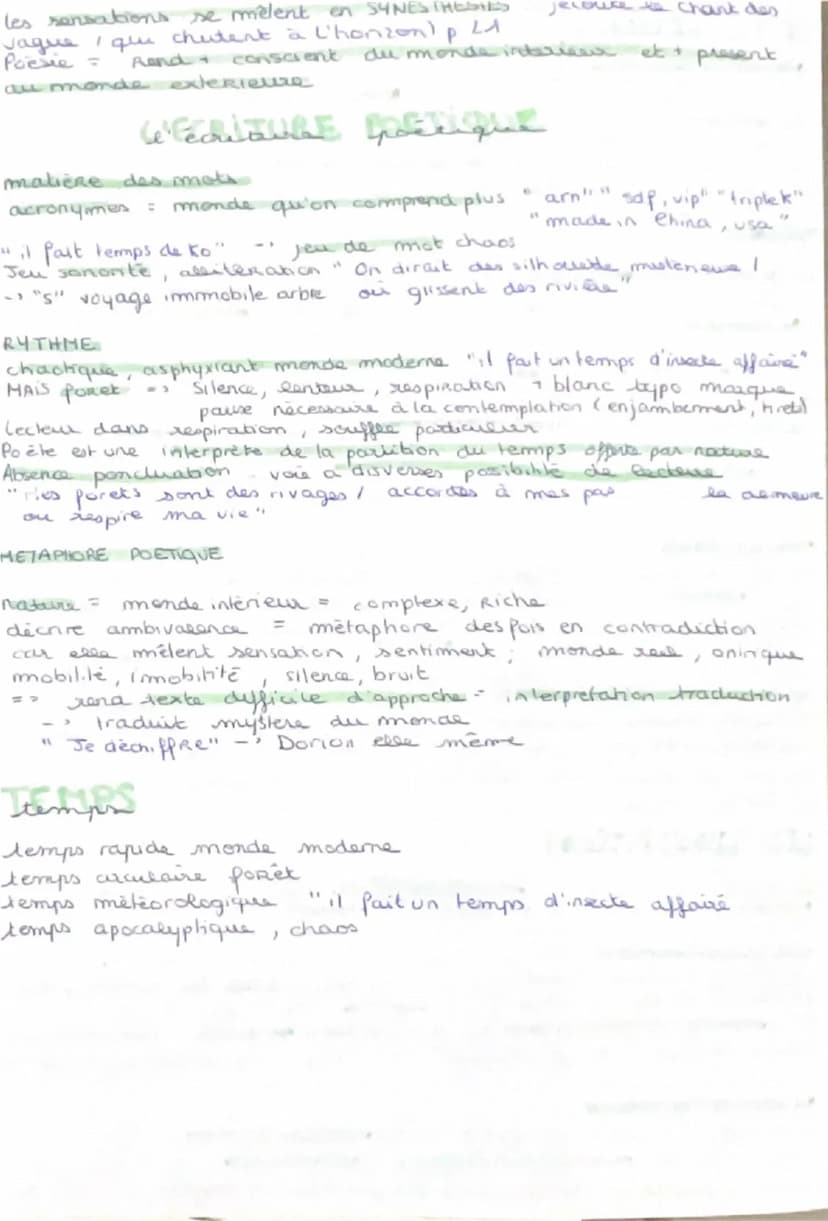 les sensations se mêlent en SYNESTHESIES j'écoute le chant des
vagues / qui chutent à l'horizon) p 21
Poésie = Rend + conscient du monde intérieur et + present
au monde exterieure
L'ECRITURE POETIQUE
L'écriture poétique
matière des mots
acronymes = monde qu'on comprend plus "arn" "sdf, vip" "triple k"
"made in China, usa"
"il fait temps de Ko" -> jeu de mot chaos
Jeu sonorité, allitération "On dirait des silhouette mysterieuse /
-> "s" voyage immobile arbre où glissent des rivière"
RYTHME
chaotique, asphyxiant monde moderne "il fait un temps d'insecte affairé"
MAIS foret => Silence, lenteur, respiration + blanc typo marque
pause nécessaire à la contemplation (enjambement, tiret)
Lecteur dans respiration, souffle particulier
Poète est une interprète de la partition du temps offerte par nature
Absence ponctuation voie a diverses possibilité de lecture
"mes forets sont des rivages / accordés à mes pas la demeure
ou respire ma vie"
METAPHORE POETIQUE
nature = monde intérieur = complexe, Riche
décrire ambivalence = métaphore des fois en contradiction
car elle mêlent sensation, sentiment ; monde reel, onirique
mobilité, immobilité, silence, bruit
=> rend texte difficile d'approche = interprétation traduction
-> traduit mystère du monde
"Je déchiffRe" -> Dorion elle même
TEMPS
temps
temps rapide monde moderne
temps circulaire forêt
temps météorologique "il fait un temps d'insecte affairé
temps apocalyptique, chaos